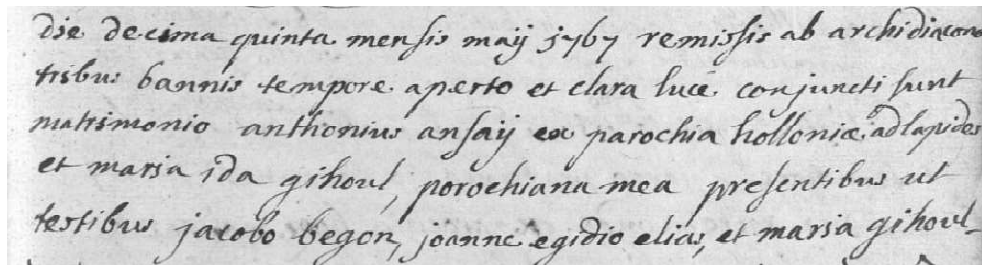 die decima quinta mensis maij 1767 remissis ab archidiacono
tribus bannis tempore aperto et clara luce conjuncti sunt
matrimonio anthonius ansaij ex parochia holloniæ ad lapides
et maria ida gihoul, porochiana mea presentibus ut
testibus jacobo begon, joanne egidio elias, et maria gihoul_